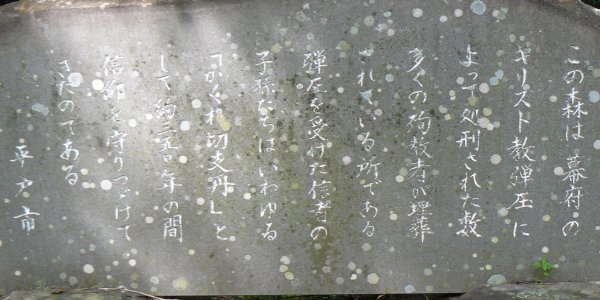 この森は 幕府の
キリスト教弾圧に
よって処刑された数
多くの殉教者が埋葬
されている所である
弾圧を受けた信者の
子孫たちはいわゆる
「かくれ切支丹」と
して約三五〇年の間
信仰を守りつづけて
きたのである
平戸市